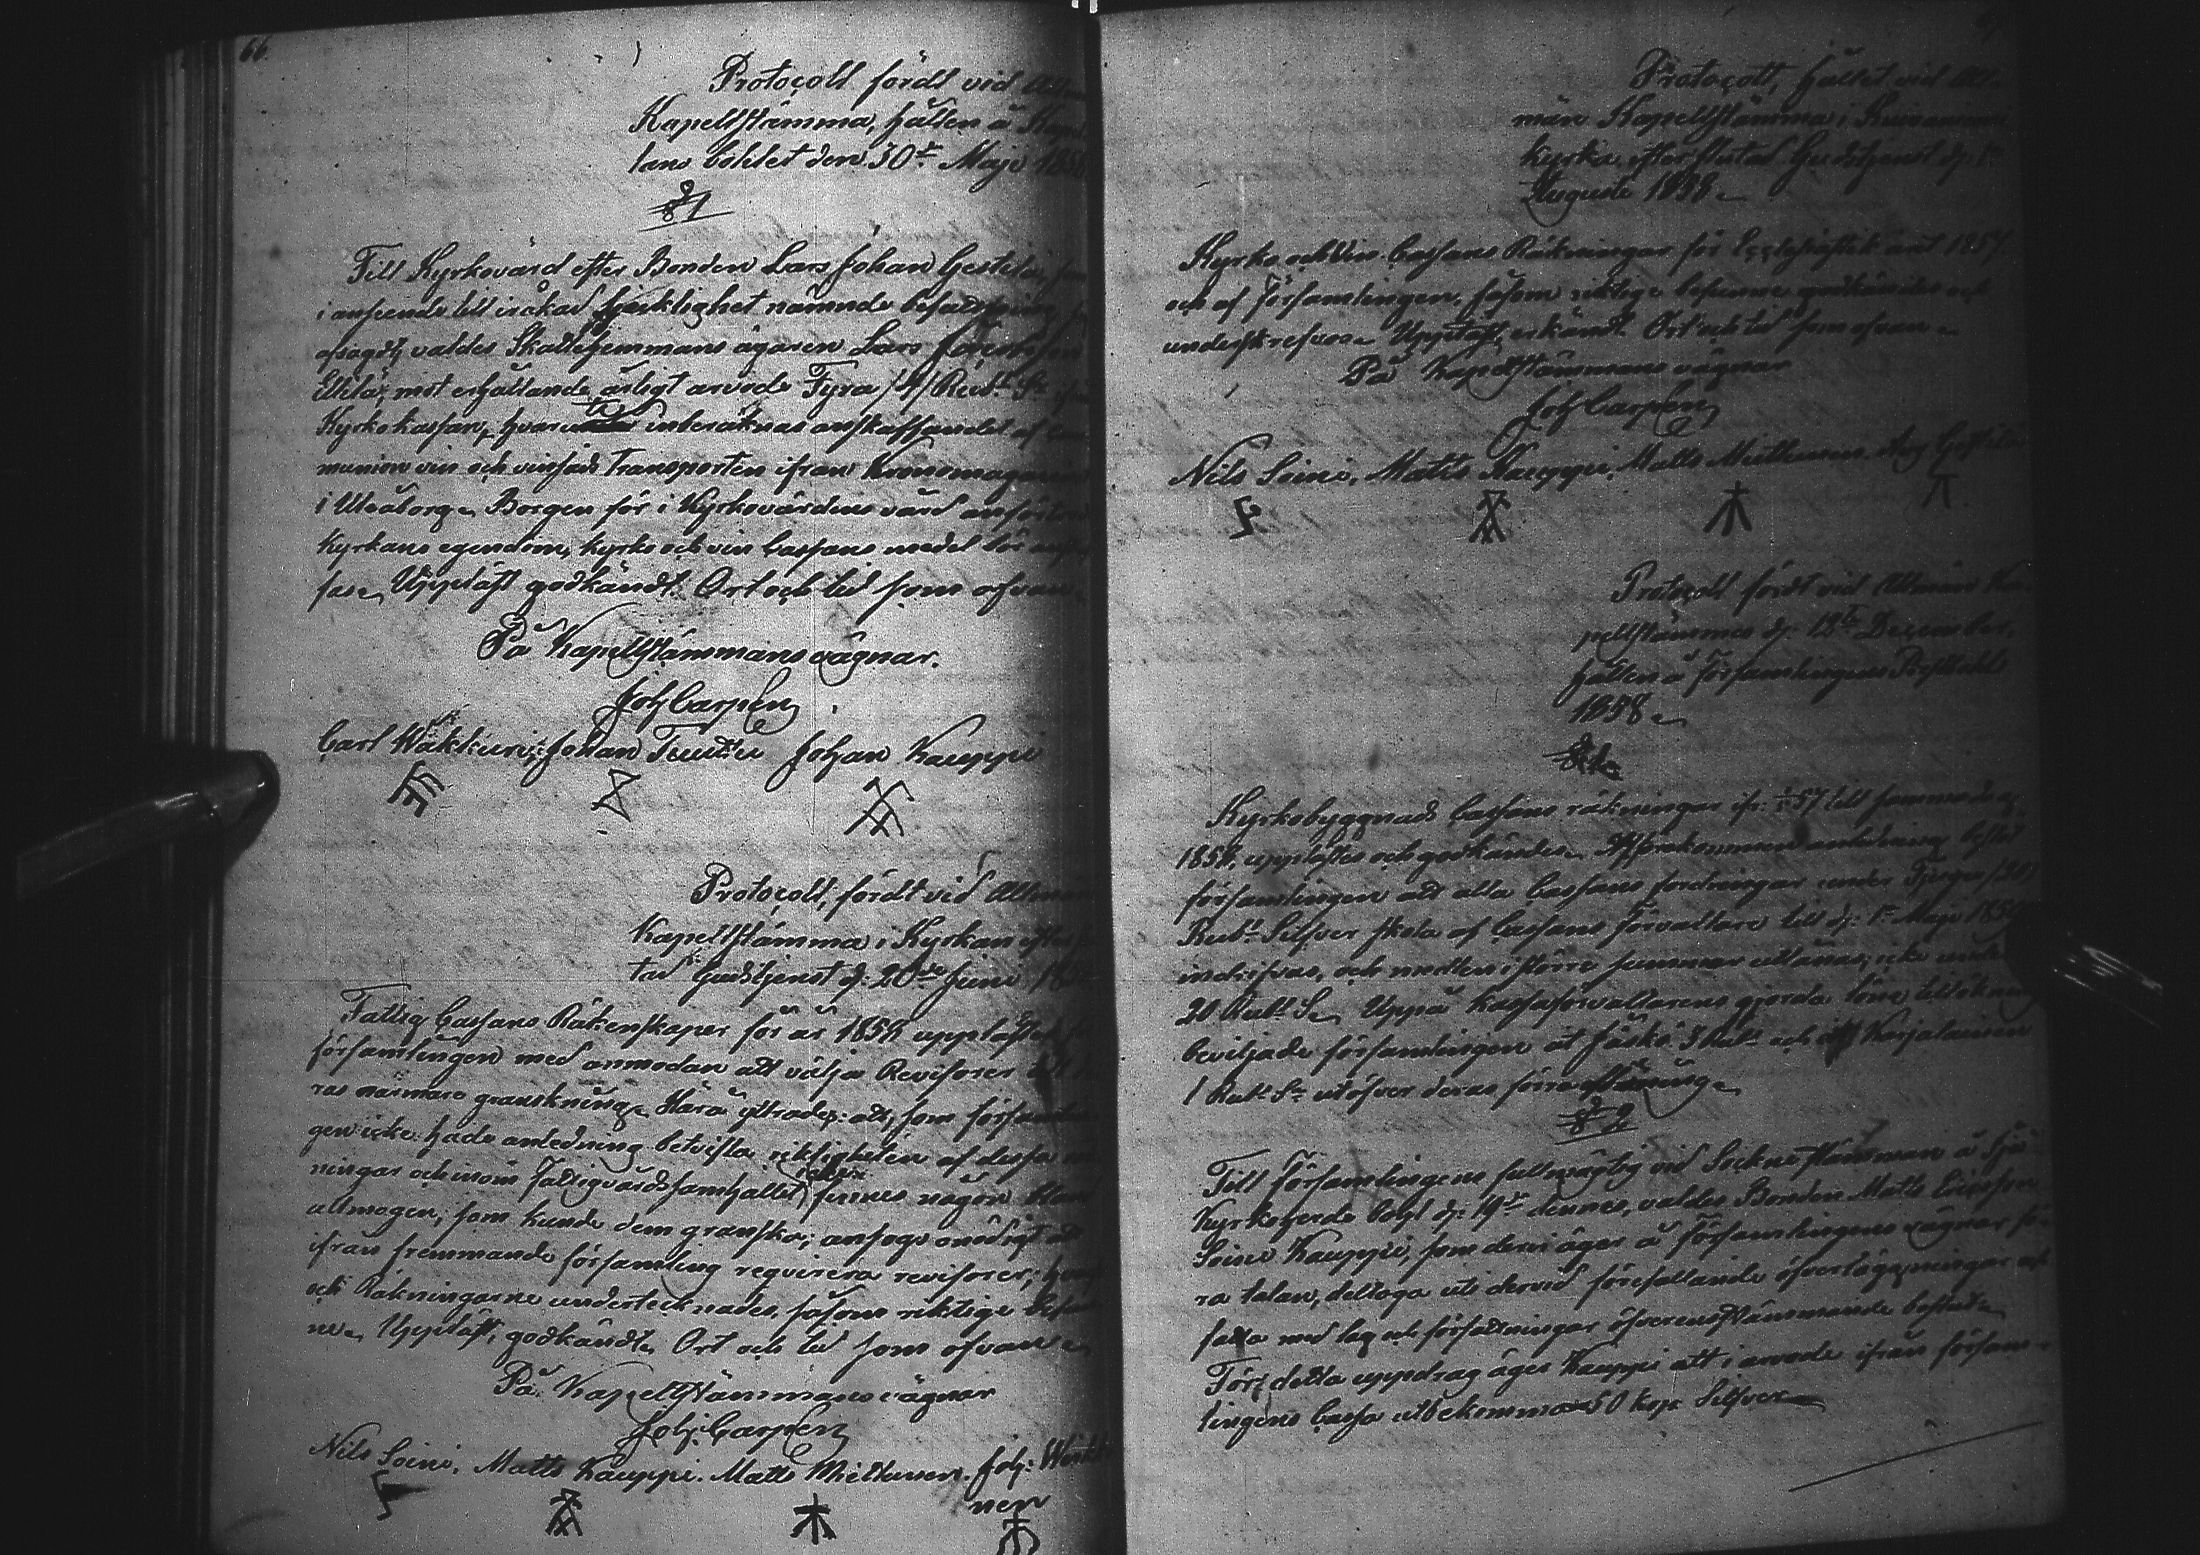 66.
Protocoll fördt vid
Kapellstämma, hållen å
lans bohlet den 30de Maji 1858
§ 1
Till Kyrkovärd efter Bonden Lars Johan Gestilä,
i anseende till iråkad sjuklighet nämnde befattning
afsagdt, valdes Skattehemmans ägaren Lars
mot erhållande årligt arvode Fyra /4/ Rub. Sr
Kyrkokassan, inberäknas anskaffandet af
munion vin och vinsäds Transporten ifrån Kronomagazinet
i Uleåborg. Borgen för i Kyrkovärdens vård anförtrodd
Kyrkans egendom, kyrko och vin Cassans medel bör
sas. Uppläst godkändt. Ort och tid som ofvan.
På Kapellstämmans vägnar.
Joh Carpen
Carl Wäkkuri, Johan Johan Kauppi
Protocoll, fördt vid Allmän
Kapellstämma i Kyrkan efter
tad Gudstjenst d: 20de Junii
Fattig Cassans Räkenskaper för år 1857 upplästes
församlingen med anmodan att välja Revisorer
ras närmare granskning. Härå yttrades: att, som församlin
gen icke hade anledning betvifla riktigheten af dessa
ningar och inom Fattigvårdssamhället finnes någon bland
allmogen, som kunde dem granska; ansågs onödigt att
ifrån fremmande församling reqvirera revisorer;
och Räkningarne undertecknades, såsom riktige
ne. Uppläst, godkändt. Ort och tid som ofvan.
På Kapellstämmans vägnar
Joh: Carpen
Nils Soini. Matts Kauppi. Matts Miettunen. Joh:
nen
Protocoll, hållet vid All
män Kapellstämma i
Kyrka efter slutad Gudstjenst d: 1ste
Augusti 1858.
Kyrko och Vin Cassans Räkningar för Ecclesiastik året 1857
och af Församlingen, såsom riktige befunne, godkändes och
underskrefvos. Uppläst, erkändt. Ort och tid som ofvan.
På Kapellstämmans vägnar
Joh Carpen
Nils Soini. Matts Kauppi. Matts Miettunen.
Protocoll fördt vid Allmän Ka
pellstämma d: 12te December,
hållen å Församlingens
1858.
§ 1.
Kyrkobyggnads Cassans räkningar ifr: 57 till samma dag
1858, upplästes och godkändes. anledning beslöt
församlingen att alla Cassans fordringar under Tjugu /20/
Rub. Silfver skola af Cassans Förvaltare till d: 1ste Maji 1859
indrifvas, och medlen i större summor utlånas, icke under
20 Rub. S. Uppå kassaförvaltarens gjorda löne tillökning
beviljade församlingen åt Jäskö 3 Rub. och åt Karjalainen
1 Rub. Sr utöfver deras förra aflöning.
§ 2
Till Församlingens fullmägtig vid Sockne stämman å
Kyrkoherde bohl d: 19de dennes, valdes Bonden Matts
Soini Kauppi, som dervid äger å Församlingens vägnar fö
ra talan, deltaga uti dervid förefallande öfverläggningar och
fatta med lag och författningar öfverensstämmande beslut.
För detta uppdrag äger Kauppi att i arvode ifrån försam
lingens Cassa utbekomma 50 kop Silfver